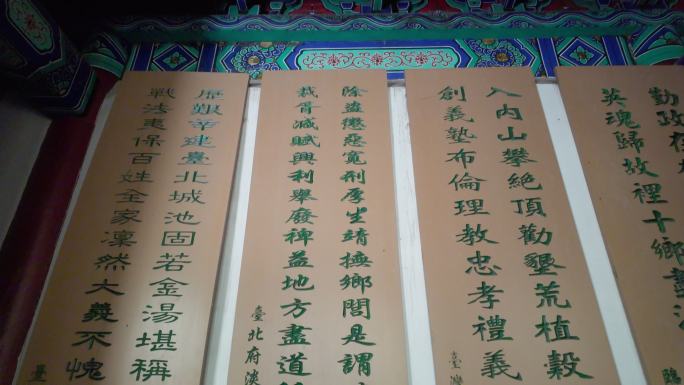 勤政
英魂歸故裡十鄉
入內山攀絕頂勸墾荒植穀
創義塾布倫理教忠孝禮義
臺灣
除盜懲惡寬刑厚生靖撫鄉閭是謂
裁胥減賦興利舉廢裨益地方盡道
臺北府淡
歷艱辛建臺北城池固若金湯堪稱
戰法夷保百姓全家凜然大義不愧
臺